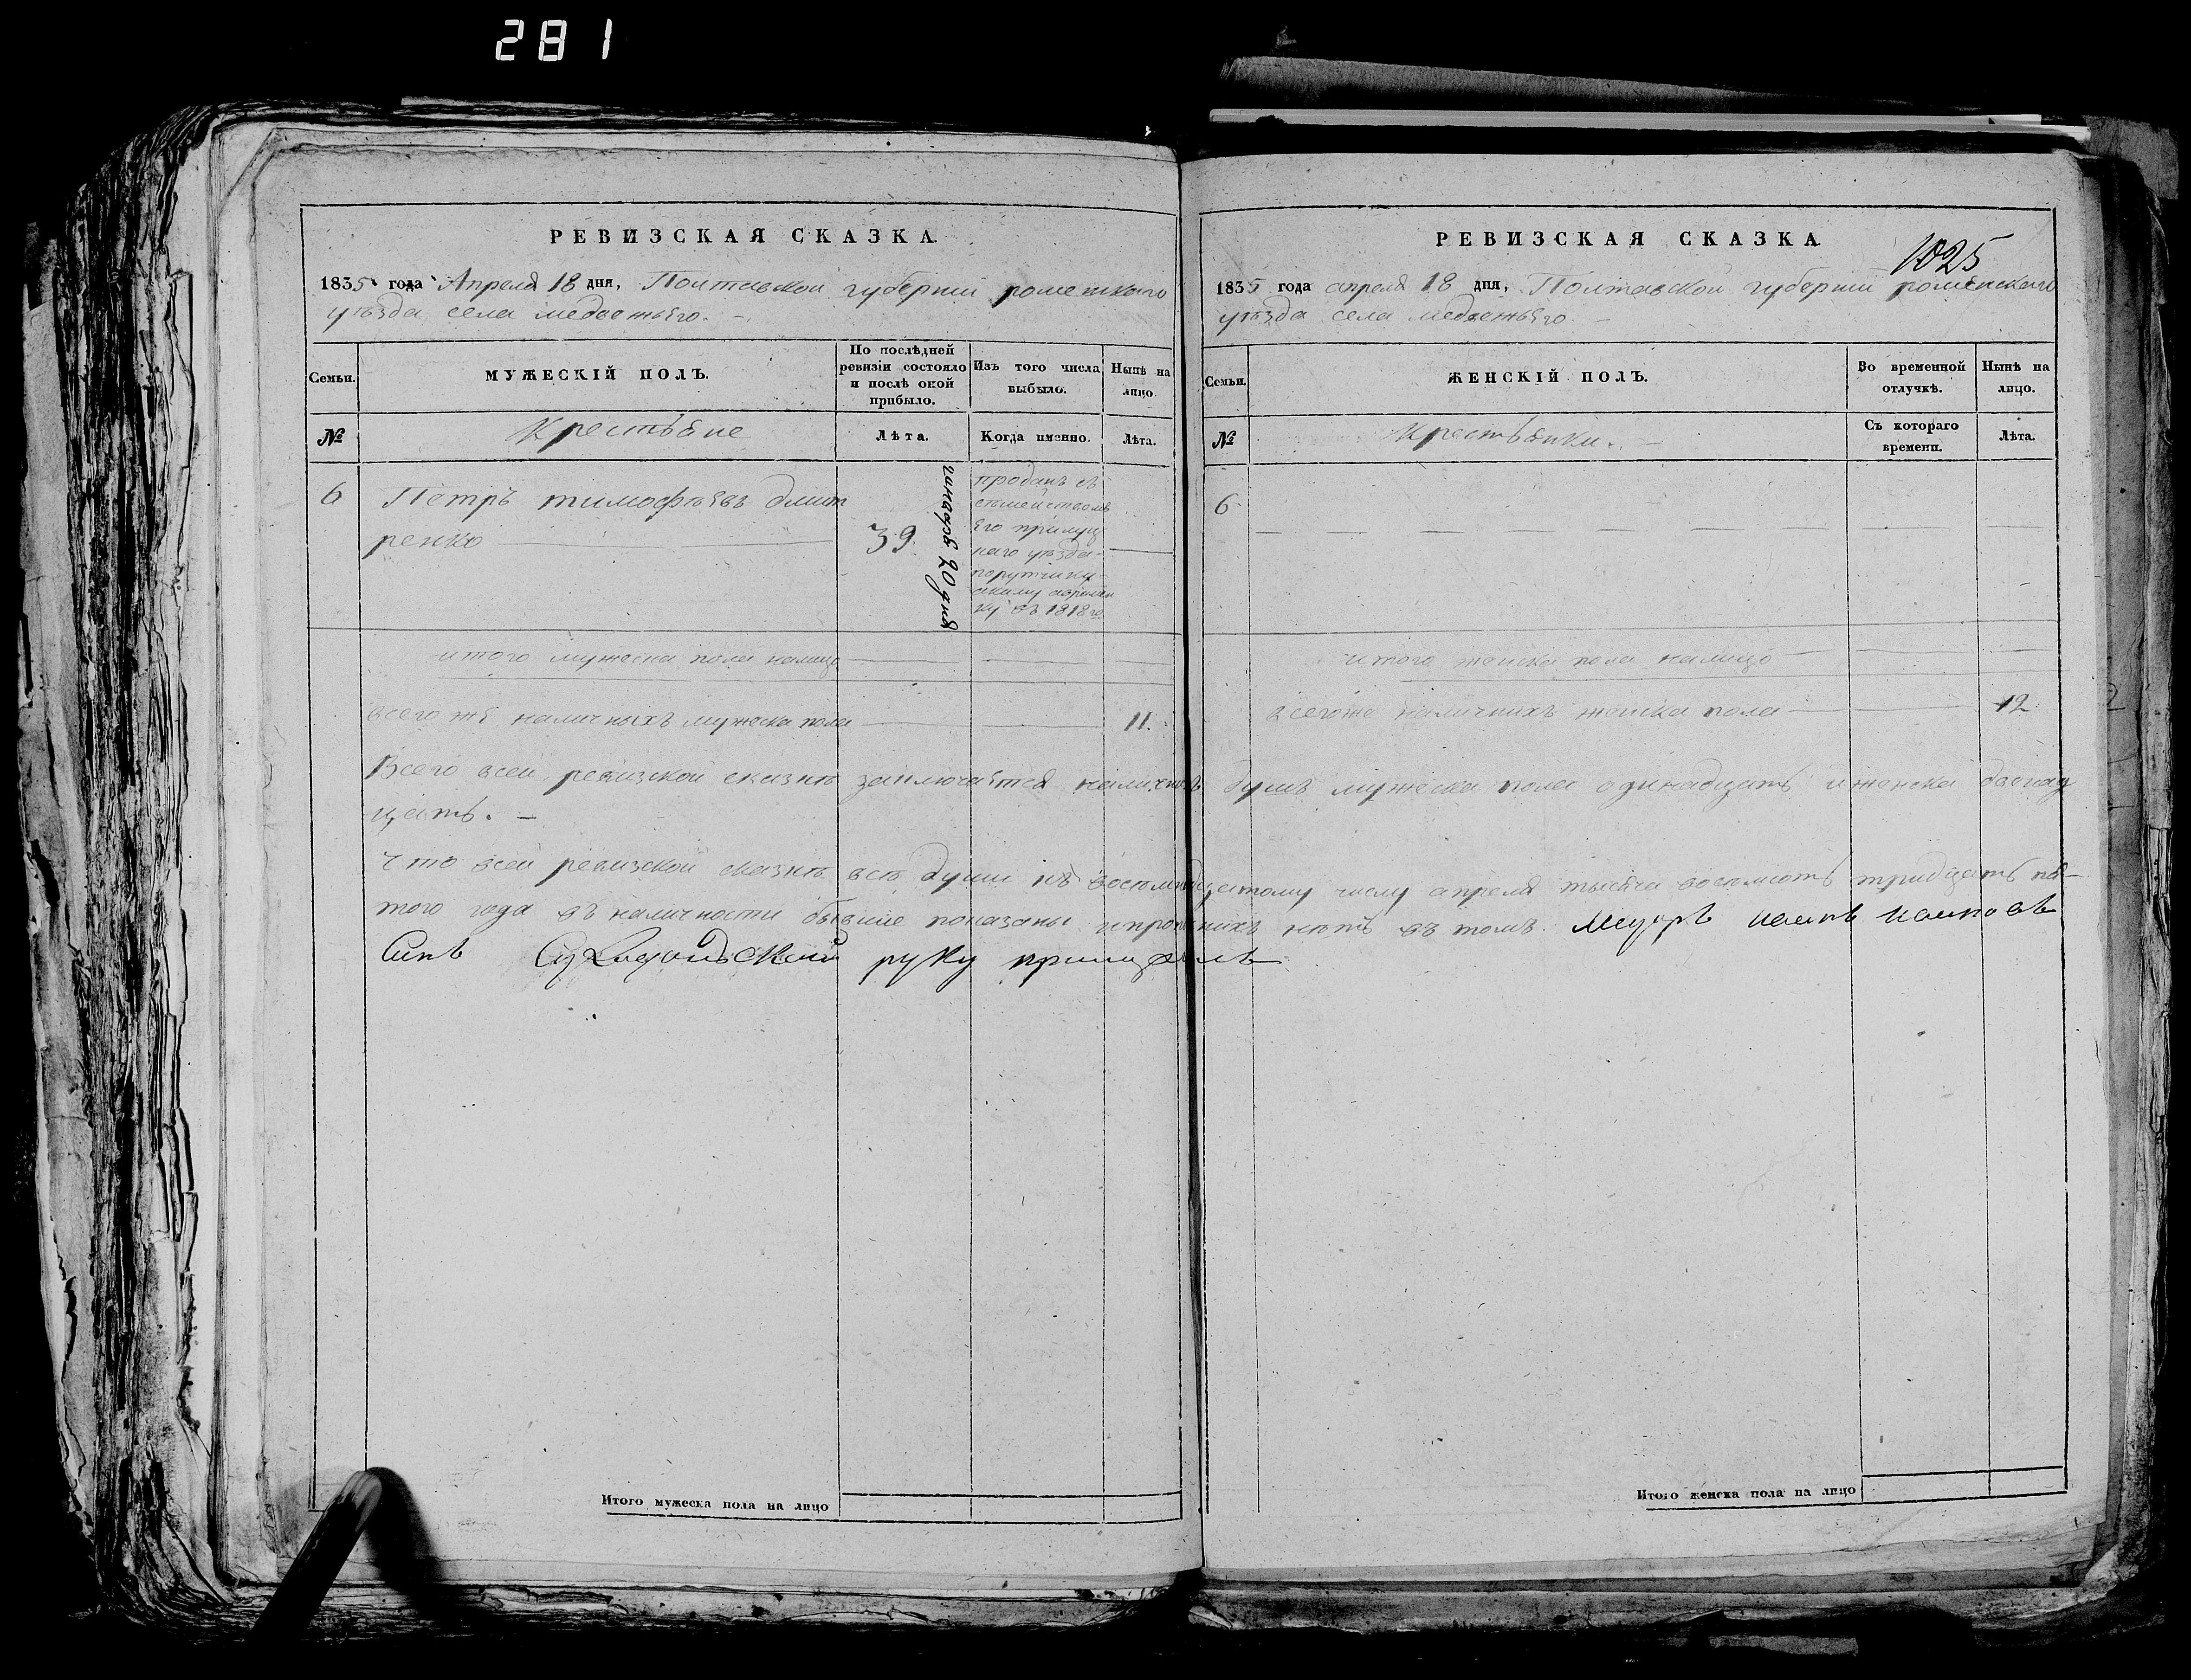 281
РЕВИЗСКАЯ СКАЗКА.
1835 года Апреля 18 дня, Полтавской губернии роменскаго
уѣзда села медвежьего. –
Семьи.
МУЖЕСКІЙ ПОЛЪ.
По послѣдней ревизіи состояло и послѣ оной прибыло.
Изъ того числа выбыло.
Нынѣ на лицо.
№
Крестьяне
Лѣта.
Когда именно.
Лѣта.
6
Петръ тимофѣевъ дмит
ренко
39.
генваря 20 дня
проданъ съ
семействомъ
его
наго уѣзда
поручику
въ 1818 го
итого мужеска пола налицо
всего же наличныхъ мужеска пола 11.
РЕВИЗСКАЯ СКАЗКА
1025
1835 года апреля 18 дня, Полтавской губернии роменскаго
уѣзда села медвежьего. –
Семьи.
ЖЕНСКІЙ ПОЛЪ.
Во временной отлучкѣ.
Нынѣ на лицо.
№
Крестьянки. –
Съ котораго времени.
Лѣта.
6
итого женска пола налицо
всегоже наличнихъ женска пола 12
Всего всей ревизской сказкѣ заключается наличныхъ душъ мужеска пола одинадцать и женска двенад
цать. –
Что всей ревизской сказкѣ всѣ души къ восемнадцатому числу апреля тысяча восемсотъ тридцать пя–
того года въ наличности бывшие показаны и нѣтъ въ томъ.
Синъ руку приложилъ
Итого мужеска пола на лицо
Итого женска пола на лицо